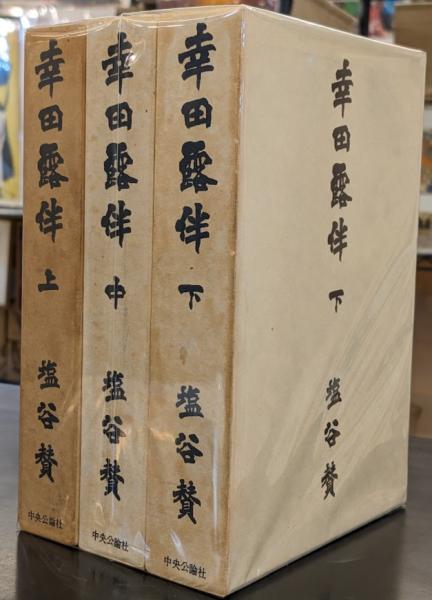 幸田露伴 上 塩谷賛
中央公論社
幸田露伴 中 塩谷賛
中央公論社
幸田露伴 下 塩谷賛
中央公論社
幸田露伴 下 塩谷賛